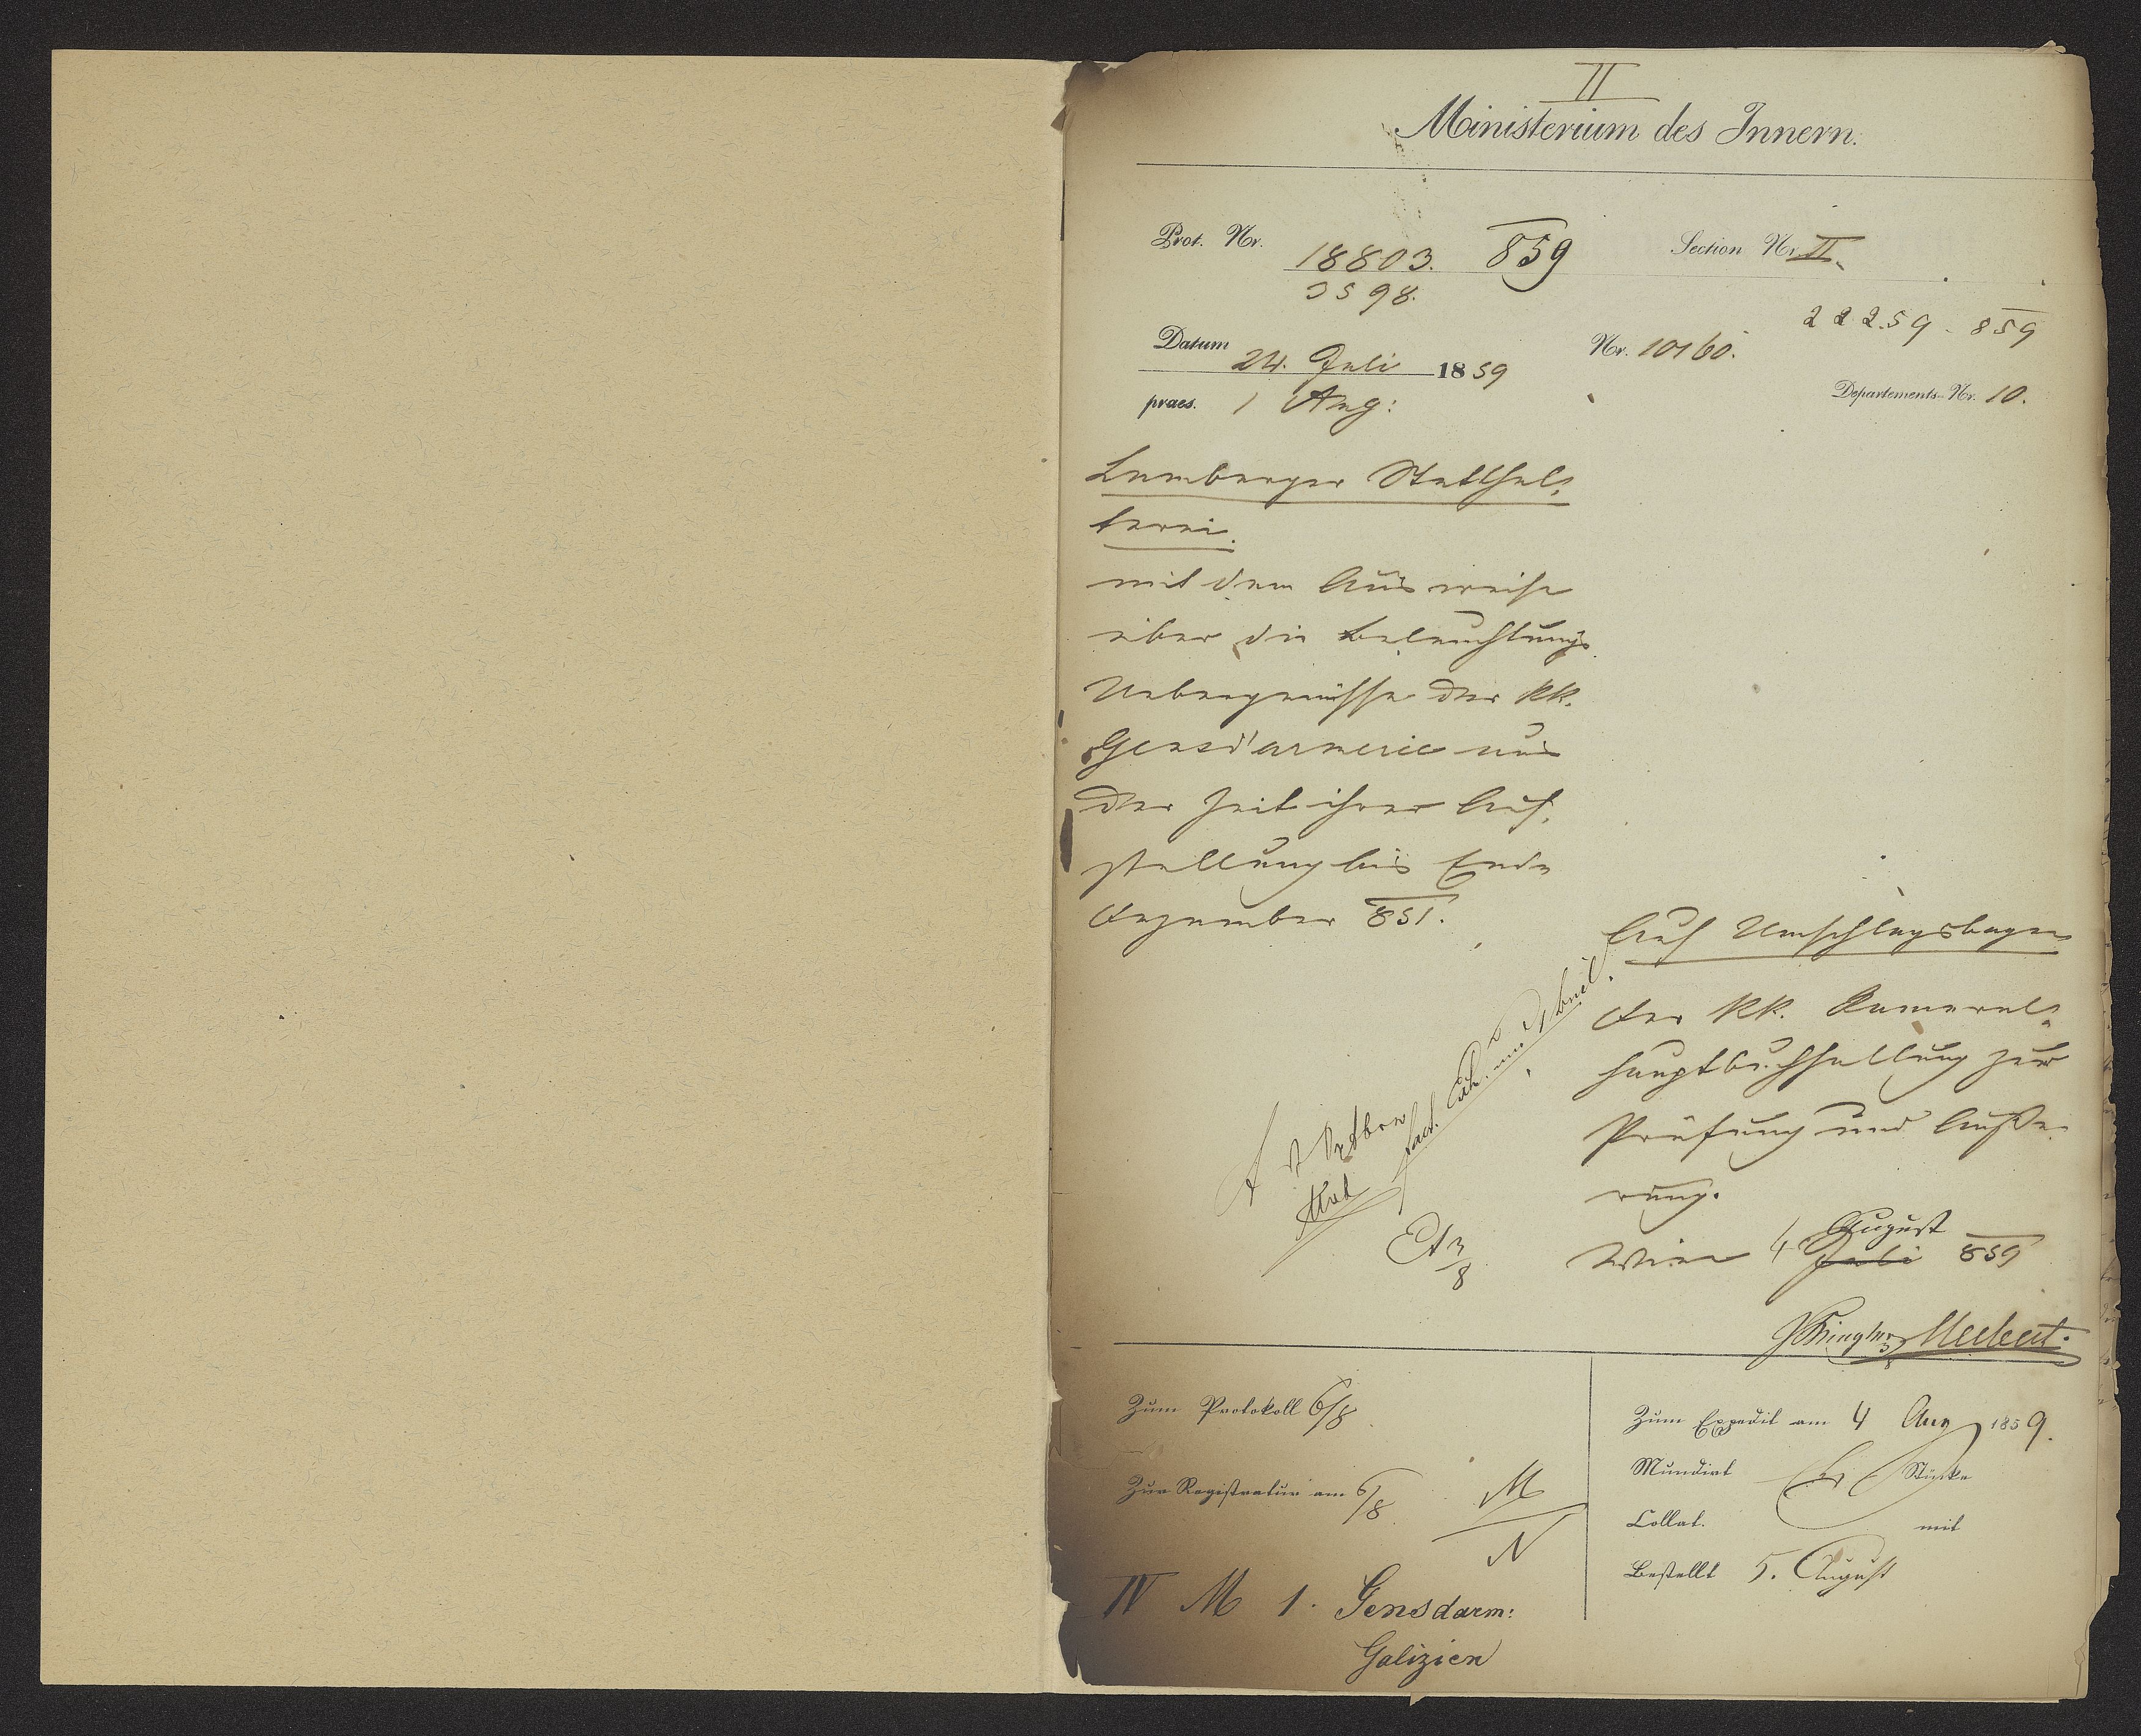 II
Ministerium des Innern.
Prot. Nr. 18803. 859
3598.
Section Nr. II.
22259. 859
Datum 24. Juli 1859
Nr. 10160.
praes. 1 Aug:
Departements-Nr. 10.
Lemberger Statthal-
terei.
mit dem Ausweise
über die Beleuchtungs
Uebergenüsse der kk.
Gensd'armerie aus
der Zeit ihrer Auf-
stellung bis Ende
Dezember 851.
Auf Umschlagsbogen
Der kk. Kameral-
hauptbuchhaltung zur
Prüfung und Äuße-
rung.
Wien 4 August
Juli 859
Zum Protokoll 6/8
Zur Registratur am 6/8
M
N
IV M 1. Gensdarm:
Galizien
Zum Expedit am 4 Aug 1859.
Mundirt Stücke
Collat. mit
Bestellt 5. August